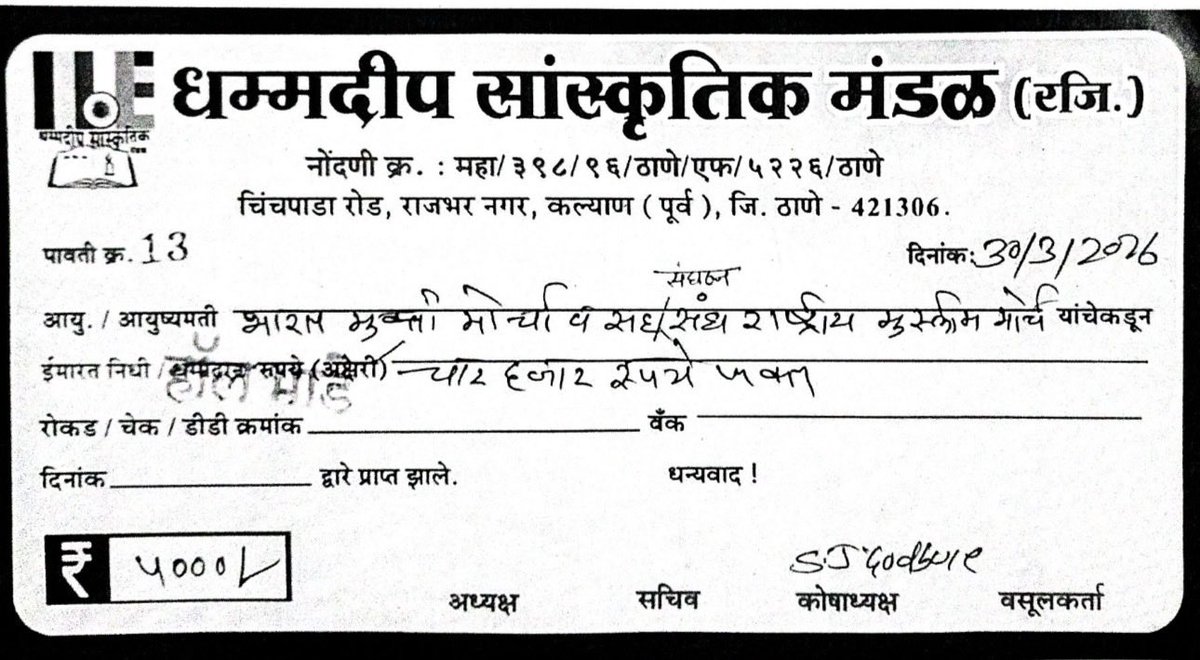 धम्मदीप सांस्कृतिक मंडळ (रजि.)
धम्मदीप सांस्कृतिक
नोंदणी क्र. : महा/३९८/९६/ठाणे/एफ/५२२६/ठाणे
चिंचपाडा रोड, राजभर नगर, कल्याण (पूर्व), जि. ठाणे - 421306.
पावती क्र. 13 दिनांक: 30/3/2026
संघठन
आयु. / आयुष्यमती भारत मुक्ती मोर्चा व सघ/संघ राष्ट्रीय मुस्लीम मोर्चा यांचेकडून
ईमारत निधी / धम्मदान रुपये (अक्षरी) चार हजार रुपये फक्त
हॉल भाडे
रोकड / चेक / डीडी क्रमांक बँक
दिनांक द्वारे प्राप्त झाले. धन्यवाद !
₹ ५०००/-
S.J. Godbole
अध्यक्ष सचिव कोषाध्यक्ष वसूलकर्ता